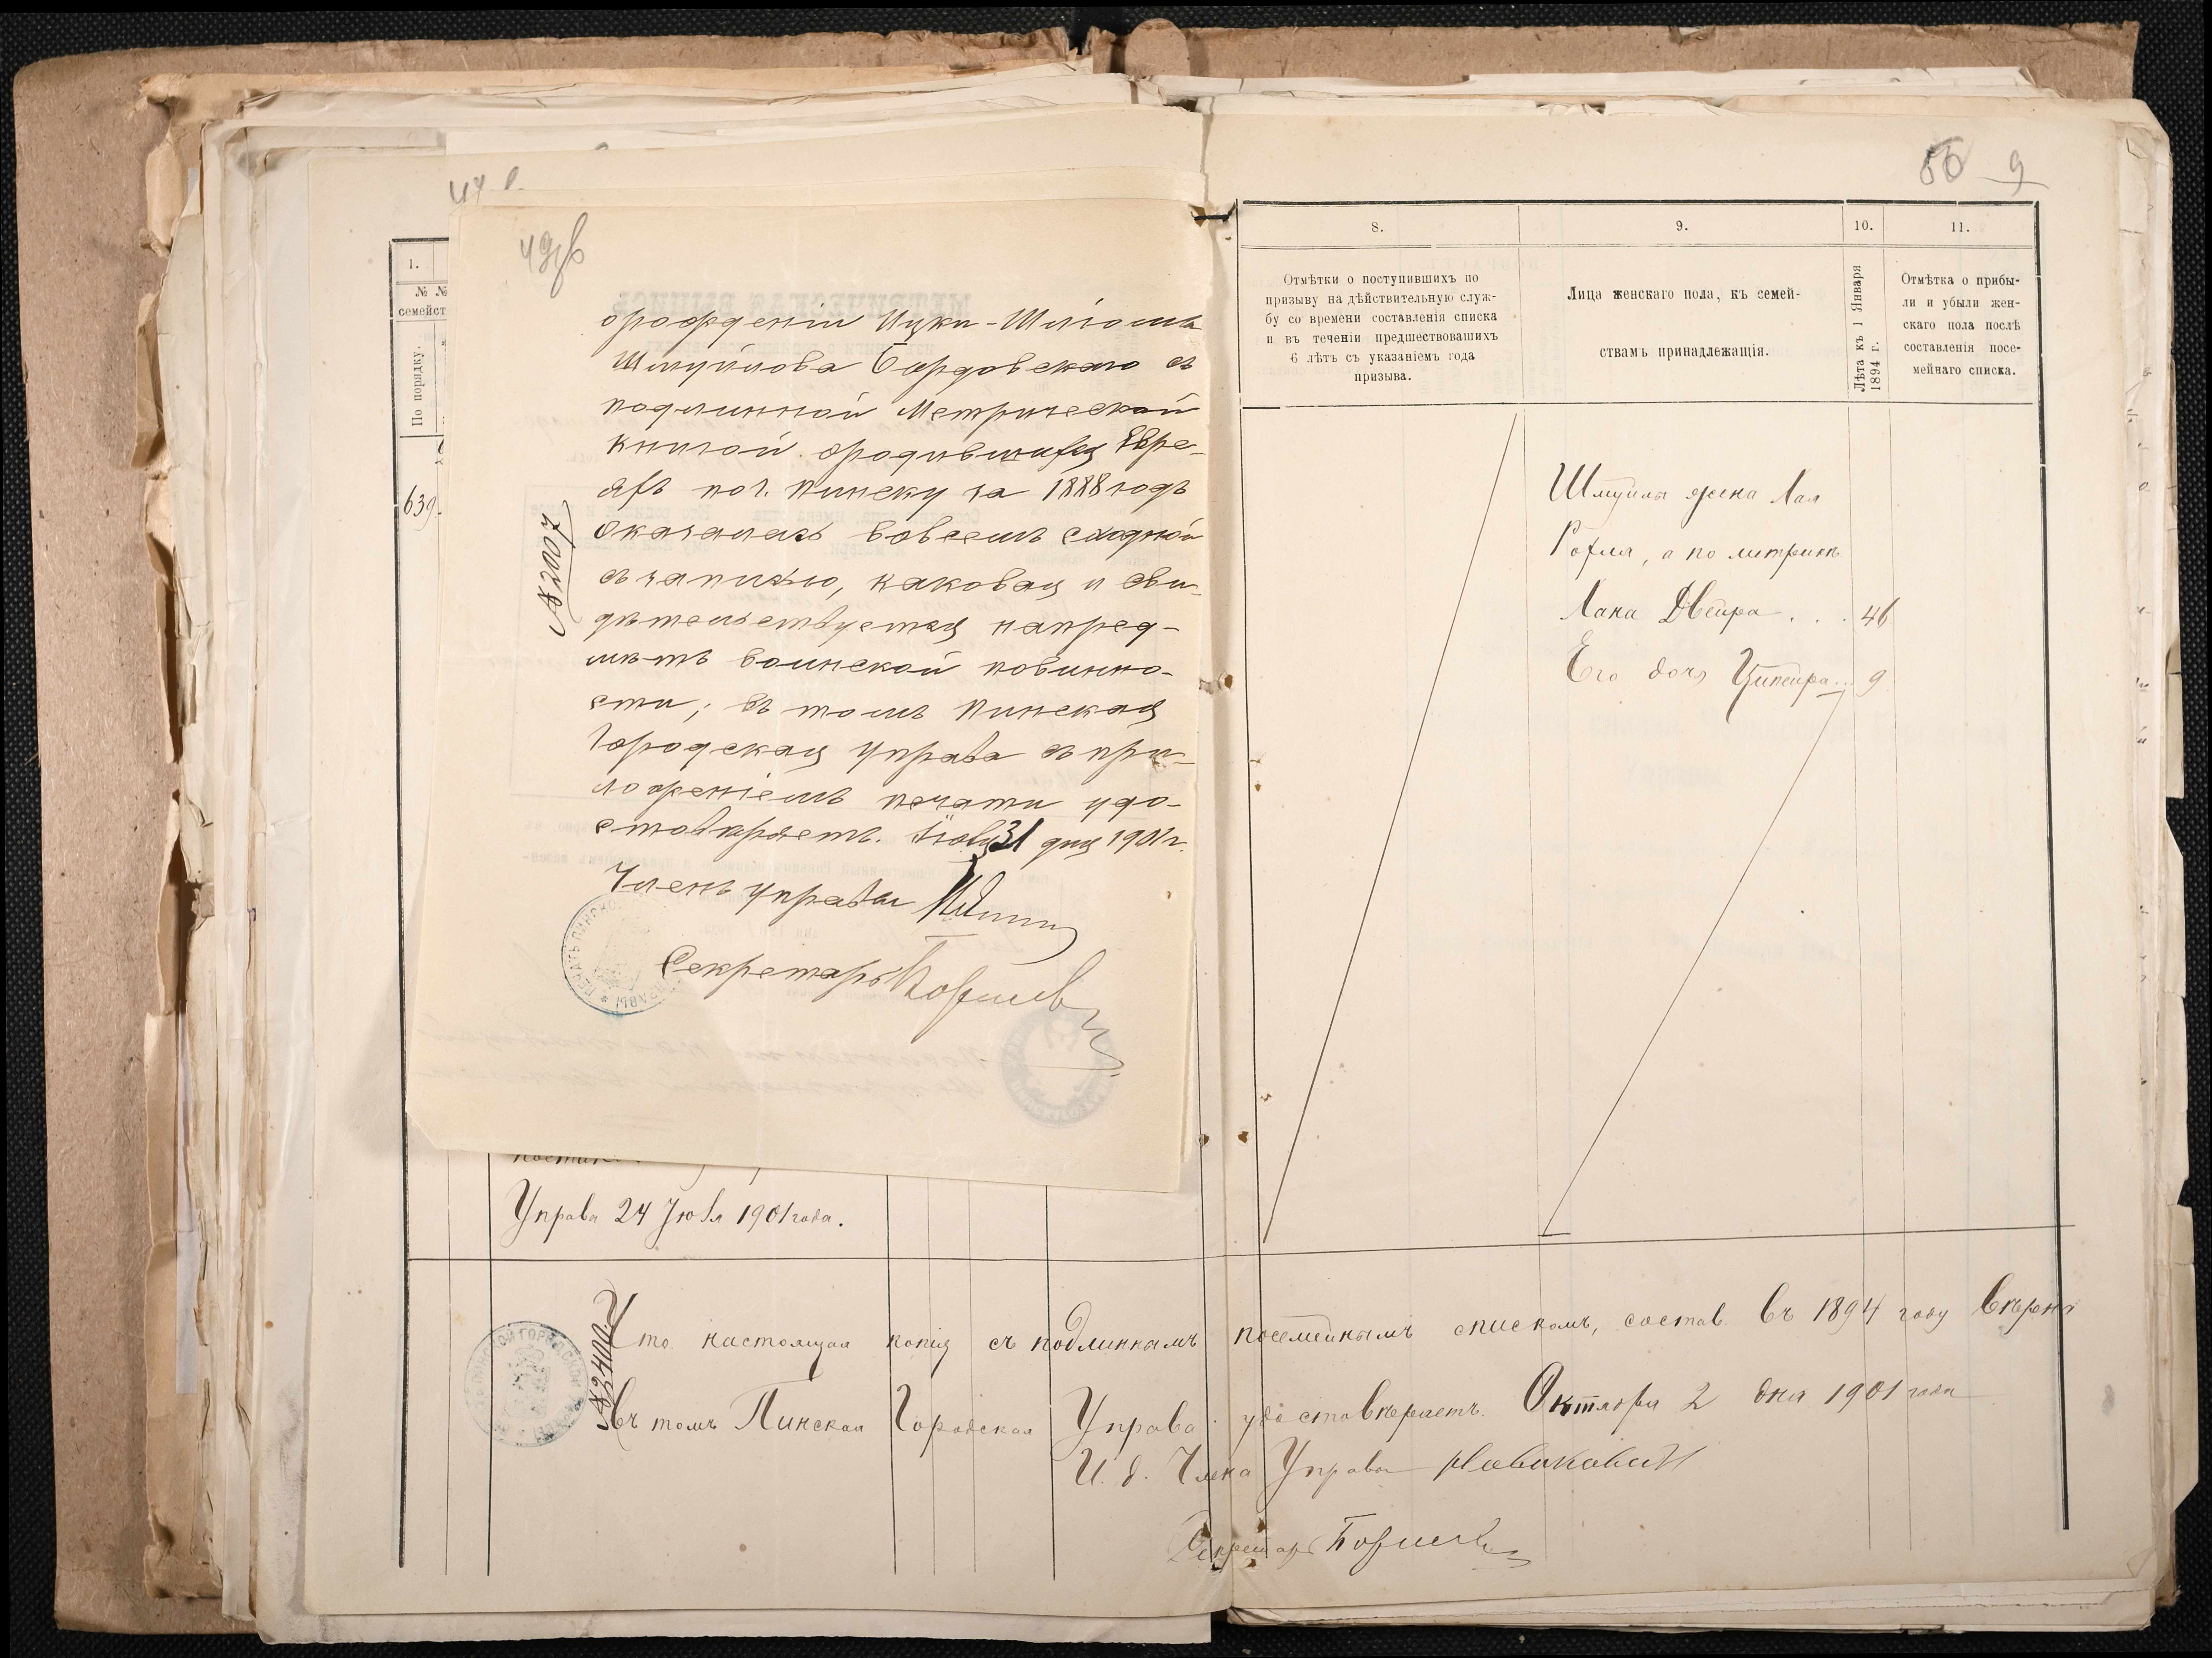 49об
орожденіи Ицки-Шліома
Шмуйлова Бордовскаго съ
подлинной метрической
книгой ородившихся Евре-
яхъ по г. Пинску за 1888 годъ
оказалась вовсемъ сходной
съ записью, каковая и сви-
дѣтельствуется напред-
мѣтъ воинской повинно-
сти; въ томъ Пинская
Городская Управа съ при-
ложеніемъ печати удо-
стовѣряетъ. Іюля 31 дня 1901 г.
Членъ Управы
Секретарь
№ 2007
1.
№ №
семейст
По порядку.
639.
Управа 24 Іюля 1901 года.
56 9
8.
Отмѣтки о поступившихъ по
призыву на дѣйствительную служ-
бу со времени составленія списка
и въ теченіи предшествовашихъ
6 лѣтъ съ указаніемъ года
призыва.
9.
Лица женскаго пола, къ семей-
ствамъ принадлежащія.
10.
Лѣта къ 1 Января
1894 г.
11.
Отмѣтка о прибы-
ли и убыли жен-
скаго пола послѣ
составленія посе-
мейнаго списка.
Шмуйлы жена Хая
Рохля, а по метрикѣ
Хана Двейра . . . 46
Его дочь Ципейра... 9
№ 2400
Что настоящая копія съ подлиннымъ посемейнымъ спискомъ, состав. въ 1894 году вѣрна
въ томъ Пинская Городская Управа удостовѣряетъ. Октября 2 дня 1901 года
И. д. Члена Управы
Секретарь